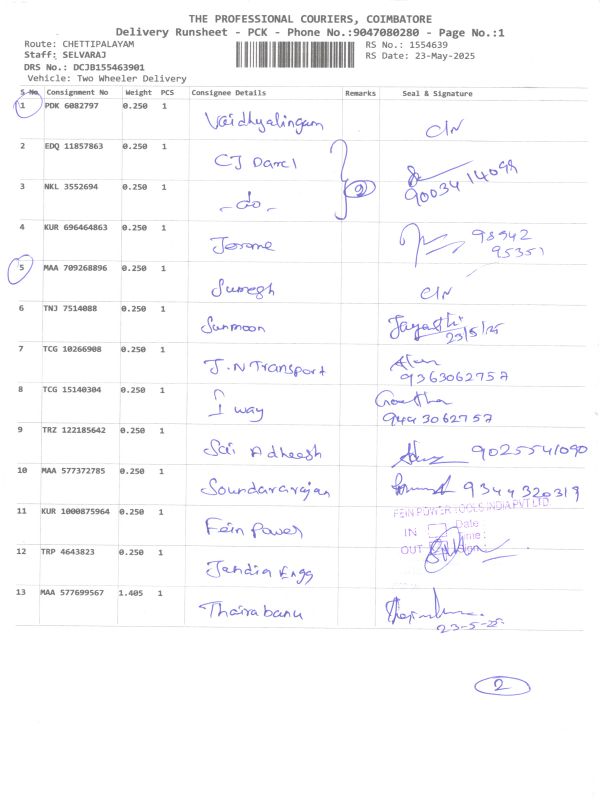 THE PROFESSIONAL COURIERS, COIMBATORE
Delivery Runsheet - PCK - Phone No.:9047080280 - Page No.:1
Route: CHETTIPALAYAM RS No.: 1554639
Staff: SELVARAJ RS Date: 23-May-2025
DRS No.: DCJB155463901
Vehicle: Two Wheeler Delivery
S No Consignment No Weight PCS Consignee Details Remarks Seal & Signature
1 PDK 6082797 0.250 1 Vaidhyalingam C/N
2 EDQ 11857863 0.250 1 CJ Darcl 9003414098
3 NKL 3552694 0.250 1 -do- 2
4 KUR 696464863 0.250 1 Jerome 98942
95351
5 MAA 709268896 0.250 1 Sumegh C/N
6 TNJ 7514088 0.250 1 Sunmoon Jayasthi
23/5/25
7 TCG 10266908 0.250 1 J.N Transport
9363062757
8 TCG 15140304 0.250 1 I way Goutha
9443062757
9 TRZ 122185642 0.250 1 Sai Adheesh 9025541090
10 MAA 577372785 0.250 1 Soundararajan 9344320319
11 KUR 1000875964 0.250 1 Fein Power FEIN POWER TOOLS INDIA PVT LTD
IN Date
OUT Time:
Sign
12 TRP 4643823 0.250 1 Jandia Engg
13 MAA 577699567 1.405 1 Thairabanu
23-5-25
2